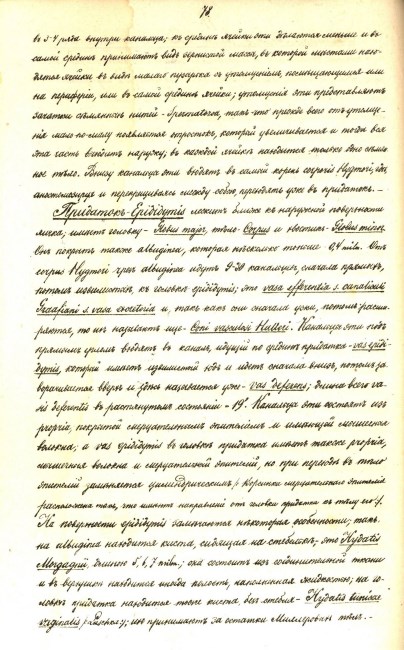 78.
въ 3-4 ряда внутри канальца; къ срединѣ ячейки эти дѣлаются меньше и въ
самой срединѣ принимаютъ видъ зернистой массы, въ которой мѣстами нахо-
дятся ячейки въ видѣ малаго пузырька съ утолщеніемъ, помѣщающимся или
на периферіи, или въ самой срединѣ ячейки; утолщенія эти представляютъ
зачатки сѣменныхъ нитей - Spermatozoa, такъ что прежде всего отъ утолще-
нія мало-по-малу появляется отростокъ, который увеличивается и тогда вся
эта часть выходитъ наружу; въ каждой ячейкѣ находится только одно сѣмен-
ное тѣло. Внизу канальца эти входятъ въ самый corpus Hygmori, гдѣ,
анастомозируя и перекрещиваясь между собою, проходятъ уже въ придатокъ. -
Придатокъ - Epididymis лежитъ ближе къ наружной поверхности
яичка; имѣетъ головку - Globus major, тѣло - Corpus и хвостикъ - Globus minor.
Онъ покрытъ также albuginea, которая нѣсколько тоньше 0,4 mlm. Отъ
corpus Hygmori чрезъ albuginea идутъ 9-20 канальцевъ, сначала прямыхъ,
потомъ извилистыхъ, къ головкѣ epididymis; это vasa efferentia s. canaliculi
Graafiani s. vasa excretoria и, такъ какъ они сначала узки, потомъ расши-
ряются, то ихъ называютъ еще - Coni vasculosi Halleri. Канальца эти подъ
прямымъ угломъ входятъ въ каналъ, идущій по срединѣ придатка - vas epidi-
dymis, который имѣетъ извилистый ходъ и идетъ сначала внизъ, потомъ за-
ворачивается вверхъ и здѣсь называется уже - vas deferens; длина всего va-
sis deferentis въ растянутомъ состояніи - 19'. Канальца эти состоятъ изъ
propria, покрытой мерцательнымъ эпителіемъ и имѣющей мышечныя
волокна; а vas epididymis въ головкѣ придатка имѣетъ также propria,
мышечныя волокна и мерцательный эпителій, но при переходѣ въ тѣло
эпителій замѣняется цилиндрическимъ /: Корешки мерцательнаго эпителія
расположены такъ, что имѣютъ направленіе отъ головки придатка къ тѣлу его:/.
На поверхности epididymis замѣчаются нѣкоторыя особенности; такъ,
на albuginea находится киста, сидящая на стебелькѣ, - это Hydatis
Morgagni, длиною 5, 6, 7 mlm.; она состоитъ изъ соединительной ткани
и въ верхушкѣ находится иногда полость, наполненная жидкостью; на го-
ловкѣ придатка находится тоже киста безъ стебля - Hydatis tunicae
vaginalis /: Luschka:/; ихъ принимаютъ за остатки Миллеровыхъ тѣлъ. -